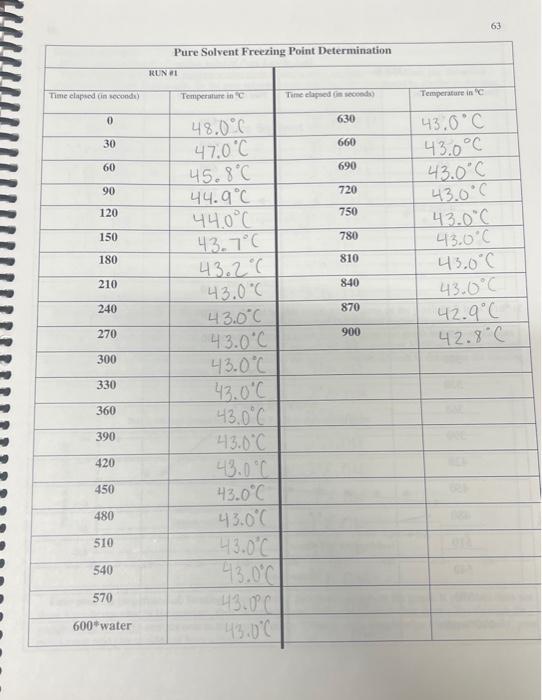 63
Pure Solvent Freezing Point Determination
RUN #1
Time elapsed (in seconds) Temperature in °C Time elapsed (in seconds) Temperature in °C
0 48.0°C 630 43.0°C
30 47.0°C 660 43.0°C
60 45.8°C 690 43.0°C
90 44.9°C 720 43.0°C
120 44.0°C 750 43.0°C
150 43.7°C 780 43.0°C
180 43.2°C 810 43.0°C
210 43.0°C 840 43.0°C
240 43.0°C 870 42.9°C
270 43.0°C 900 42.8°C
300 43.0°C
330 43.0°C
360 43.0°C
390 43.0°C
420 43.0°C
450 43.0°C
480 43.0°C
510 43.0°C
540 43.0°C
570 43.0°C
600*water 43.0°C